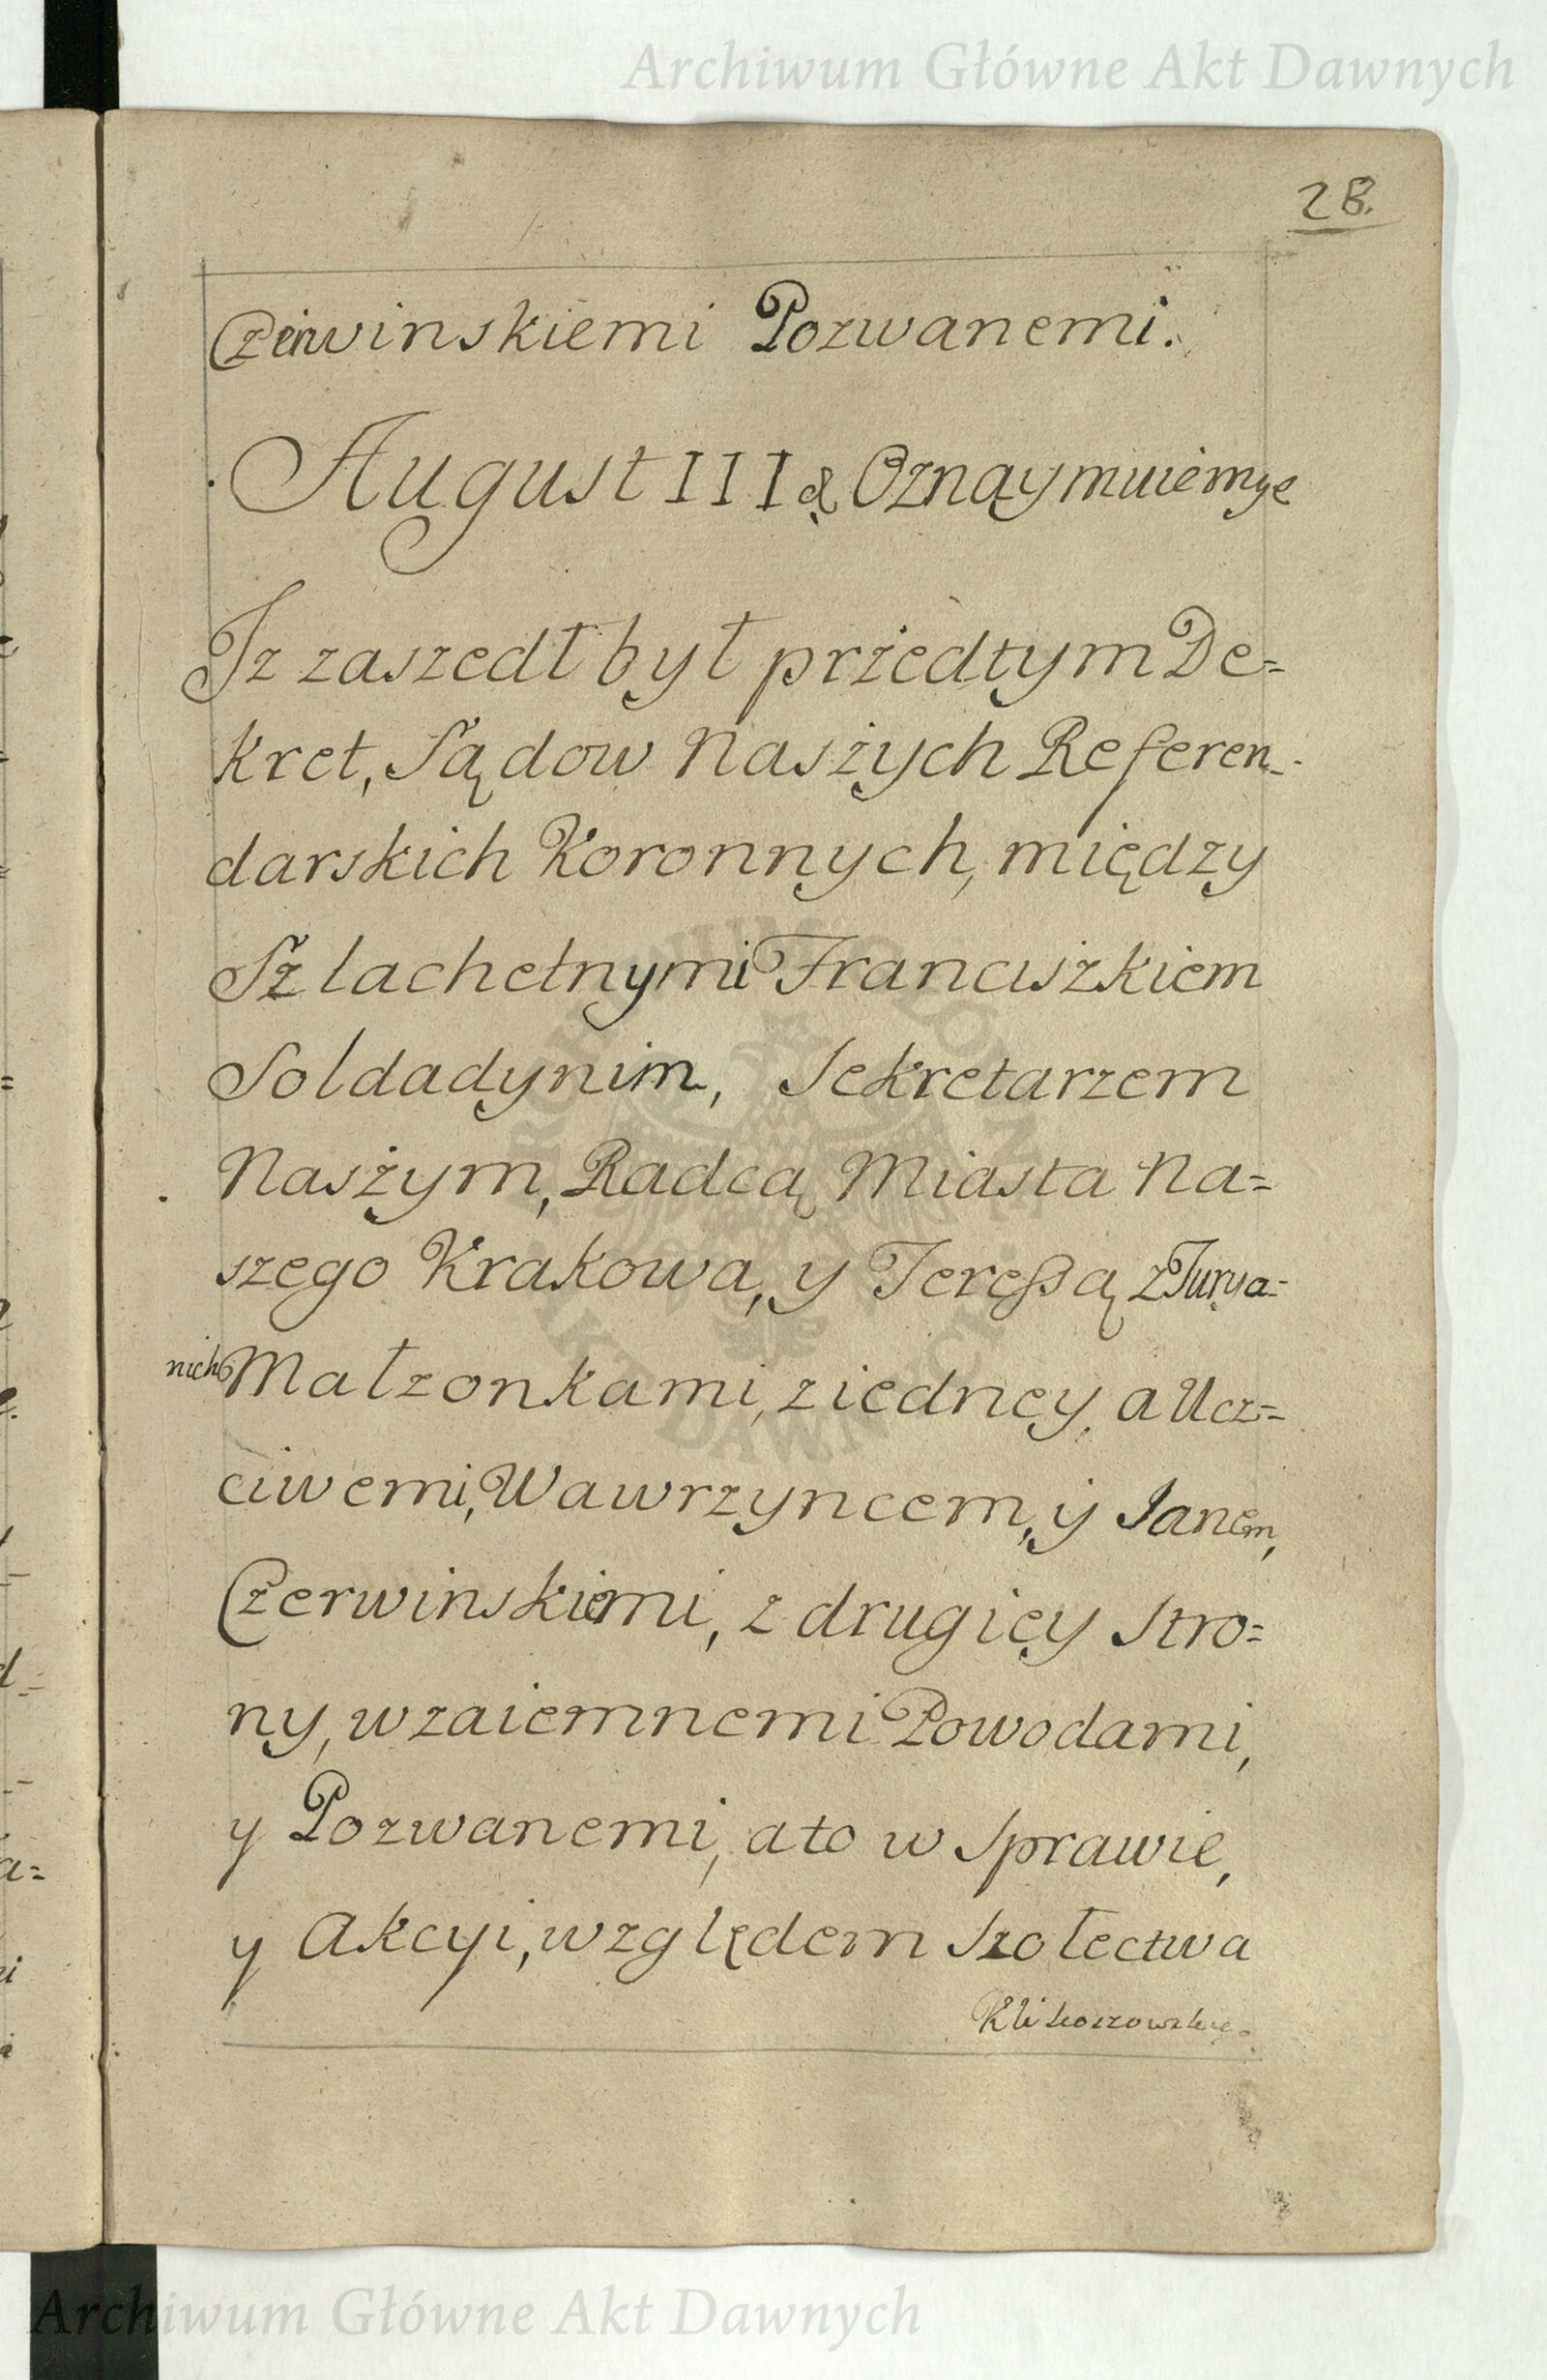 Archiwum Główne Akt Dawnych
28.
Czerwinskiemi Pozwanemi.
August III & Oznaymuiemy e
Iz zaszedł był przedtym De=
kret, Sądow Naszych Referen-
darskich Koronnych, między
Szlachetnymi Franciszkiem
Soldadynim, Sekretarzem
Naszym, Radcą Miasta Na=
szego Krakowa, y Teressą z Turya=
nich Małzonkami, z iedney, a Ucz=
ciwemi, Wawrzyncem, y Janem,
Czerwinskiemi, z drugiey Stro=
ny, wzaiemnemi Powodami,
y Pozwanemi, a to w Sprawie,
y Akcyi, względem Szołectwa
Archiwum Główne Akt Dawnych